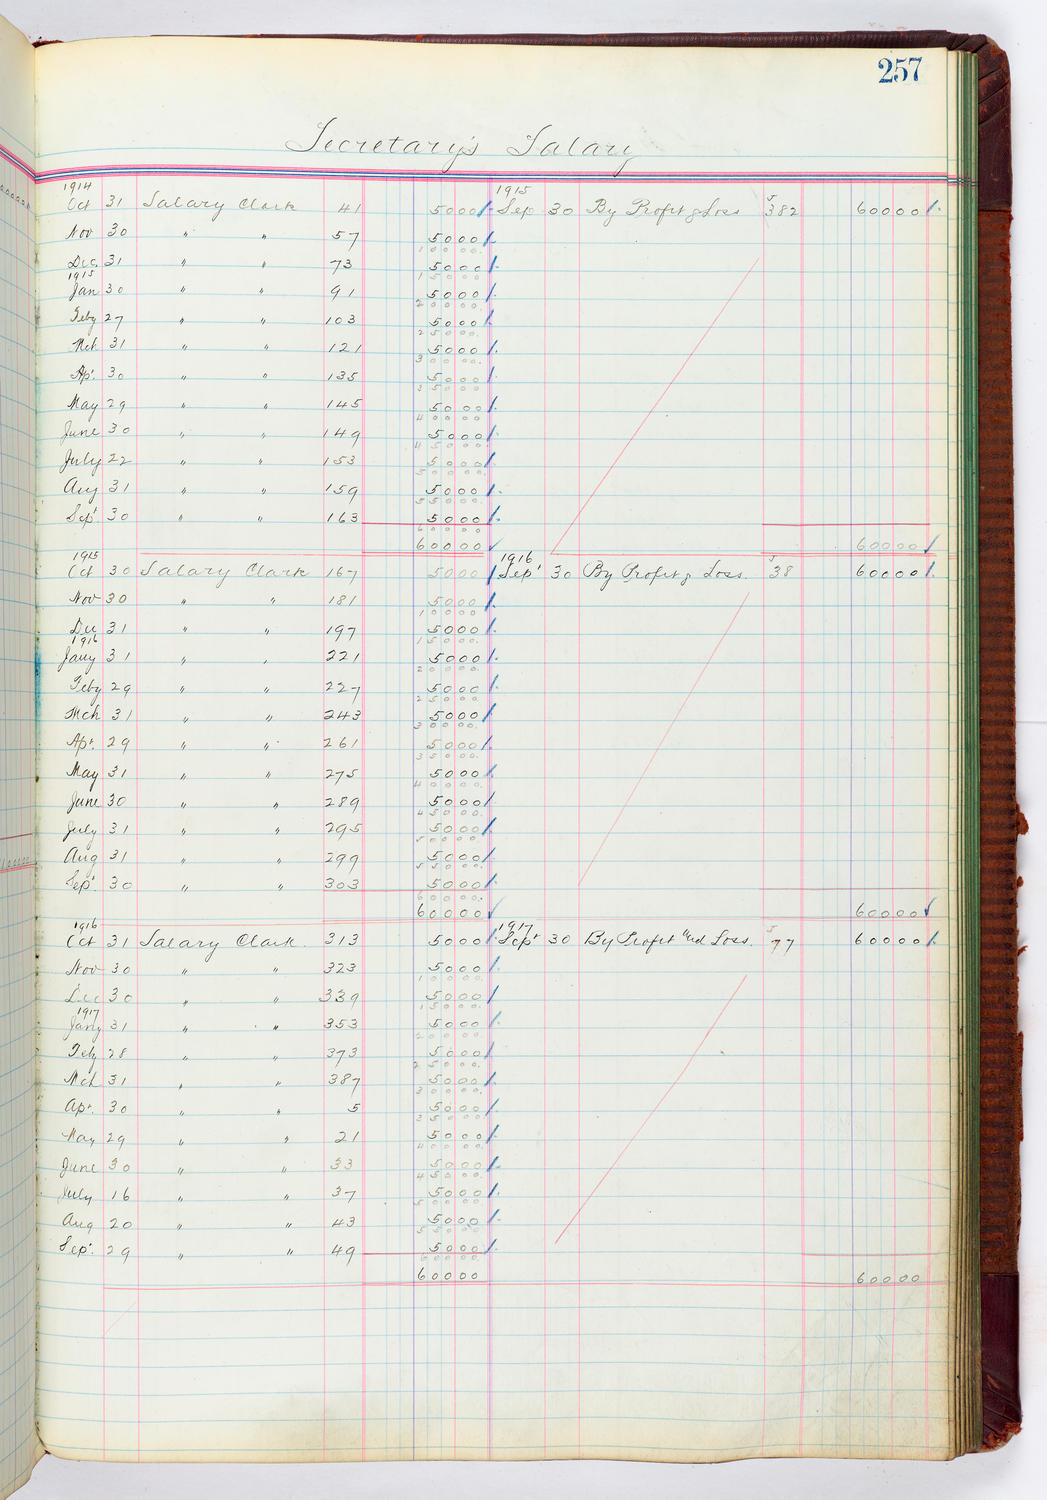 257
Secretary's Salary
1914 1915
Oct 31 Salary Clark 41 5000 Sep 30 By Profit & Loss J 382 60000
Nov 30 " " 57 5000
10000
Dec. 31 " " 73 5000
1915 15000
Jan 30 " " 91 5000
20000
Feby 27 " " 103 5000
25000
Mch 31 " " 121 5000
30000
Ap'. 30 " " 135 5000
35000
May 29 " " 145 5000
40000
June 30 " " 149 5000
45000
July 22 " " 153 5000
50000
Aug 31 " " 159 5000
55000
Sep' 30 " " 163 5000
60000
60000 60000
1915 1916
Oct 30 Salary Clark 167 5000 Sep' 30 By Profit & Loss. J 38 60000
Nov 30 " " 181 5000
10000
Dec 31 " " 197 5000
1916 15000
Jany 31 " " 221 5000
20000
Feby 29 " " 227 5000
25000
Mch 31 " " 243 5000
30000
Apr. 29 " " 261 5000
35000
May 31 " " 275 5000
40000
June 30 " " 289 5000
45000
July 31 " " 295 5000
50000
Aug 31 " " 299 5000
55000
Sep' 30 " " 303 5000
60000
60000 60000
1916 1917
Oct 31 Salary Clark. 313 5000 Sept 30 By Profit and Loss. J 77 60000
Nov 30 " " 323 5000
10000
Dec 30 " " 339 5000
1917 15000
Jany 31 " " 353 5000
20000
Feby 28 " " 373 5000
25000
Mch 31 " " 387 5000
30000
Apr. 30 " " 5 5000
35000
May 29 " " 21 5000
40000
June 30 " " 33 5000
45000
July 16 " " 37 5000
50000
Aug 20 " " 43 5000
55000
Sep'. 29 " " 49 5000
60000
60000 60000